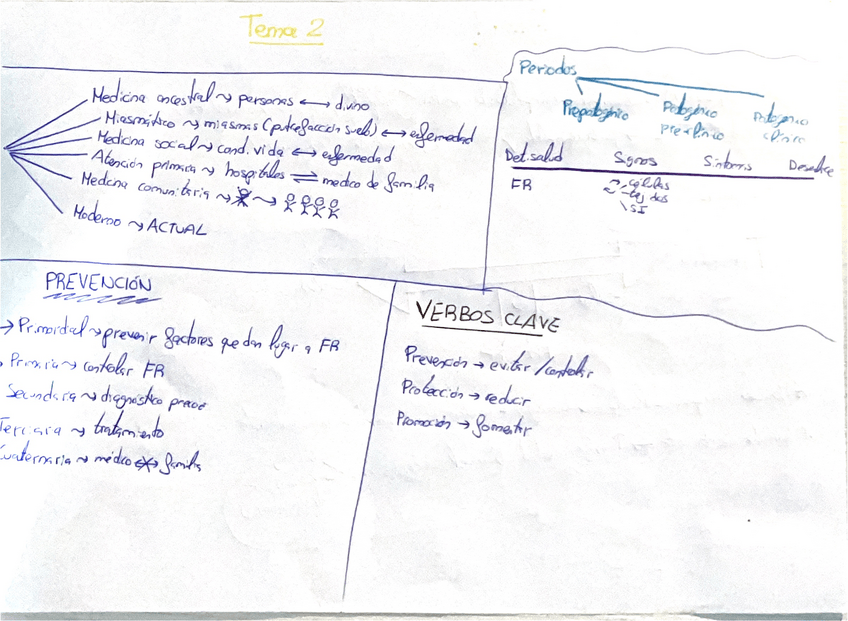 Tema 2
Medicina ancestral ~> personas <-> divino
Miasmático ~> miasmas (putrefacción suelo) <-> enfermedad
Medicina social ~> cond. vida <-> enfermedad
Atención primaria ~> hospitales ⇌ medico de familia
Medicina comunitaria ~> ~>
Moderno ~> ACTUAL
Periodos
Prepatogénico Patogénico preclínico Patogénico clínico
Det. salud Signos Síntomas Desenlace
FR células
tejidos
SI
PREVENCIÓN
→ Primordial ~> prevenir factores que dan lugar a FR
Primaria ~> controlar FR
Secundaria ~> diagnóstico precoz
Terciaria ~> tratamiento
Cuaternaria ~> médico <-> familia
VERBOS CLAVE
Prevención → evitar/controlar
Protección → reducir
Promoción → fomentar